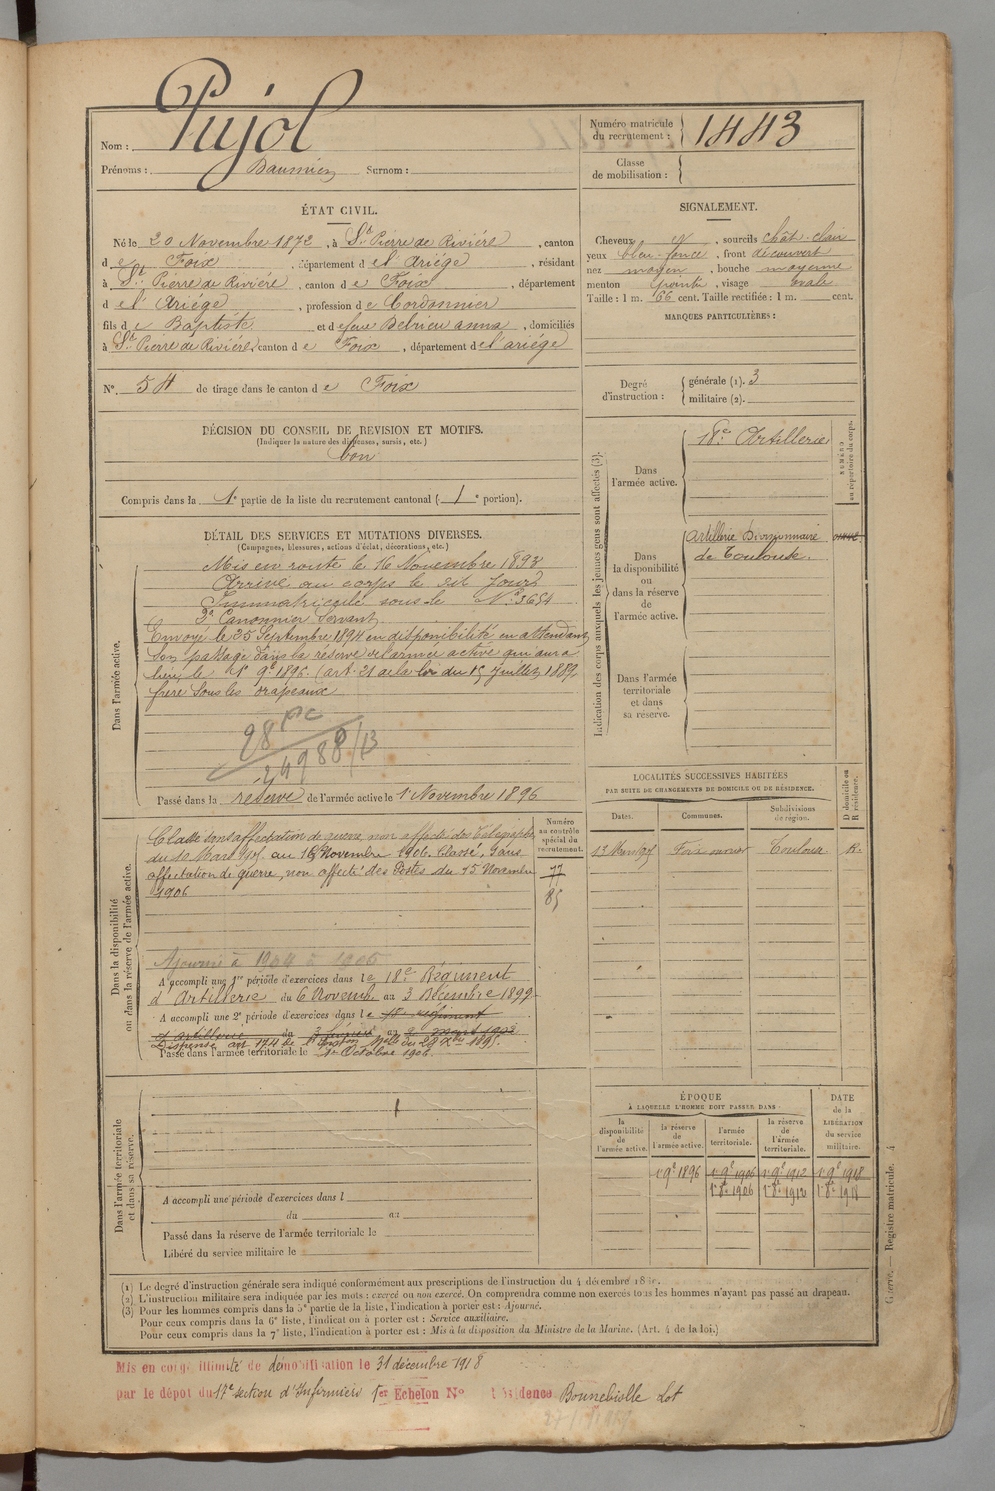 Nom : Pujol
Prénoms : Baumier Surnom :
Numéro matricule du recrutement : 1443
Classe de mobilisation :
ÉTAT CIVIL.
Né le 20 Novembre 1872, à St Pierre de Rivière, canton
de Foix, département de l'Ariége, résidant
à St Pierre de Rivière, canton de Foix, département
de l'Ariége, profession de Cordonnier
fils de Baptiste et de feue Debrieu anna, domiciliés
à St Pierre de Rivière, canton de Foix, département de l'ariége
N° 54 de tirage dans le canton de Foix
DÉCISION DU CONSEIL DE REVISION ET MOTIFS.
(Indiquer la nature des dispenses, sursis, etc.)
bon
Compris dans la 1e partie de la liste du recrutement cantonal (1e portion).
SIGNALEMENT.
Cheveux et, sourcils chât-clair
yeux bleu-foncé, front découvert
nez moyen, bouche moyenne
menton pointu, visage ovale
Taille : 1 m. 66 cent. Taille rectifiée : 1 m. cent.
MARQUES PARTICULIÈRES :
Degré d'instruction : générale (1). 3
militaire (2).
DÉTAIL DES SERVICES ET MUTATIONS DIVERSES.
(Campagnes, blessures, actions d'éclat, décorations, etc.)
Dans l'armée active.
Mis en route le 16 Novembre 1893
Arrivé au corps le dit jour
Immatriculé sous le N° 3654
2e Canonnier Servant
Envoyé le 25 Septembre 1894 en disponibilité en attendant
son passage dans la réserve de l'armée active qui aura
lieu le 1er 9bre 1896. (art. 21 de la loi du 15 Juillet 1889
frère sous les drapeaux
28 pc
24988/13
Passé dans la réserve de l'armée active le 1er Novembre 1896
Indication des corps auxquels les jeunes gens sont affectés (3).
NUMÉRO au répertoire du corps.
Dans l'armée active.
18e Artillerie
Dans la disponibilité ou dans la réserve de l'armée active.
artillerie Divisionnaire
de Toulouse.
Dans l'armée territoriale et dans sa réserve.
LOCALITÉS SUCCESSIVES HABITÉES
PAR SUITE DE CHANGEMENTS DE DOMICILE OU DE RÉSIDENCE.
Dates. Communes. Subdivisions de région. D domicile ou R résidence.
Toulouse R.
Dans la disponibilité ou dans la réserve de l'armée active.
Numéro au contrôle spécial du recrutement.
77
85
Classé sans affectation de guerre, non affecté des télégraphes
du 12 Mars 1905 au 15 Novembre 1906. Classé, sans
affectation de guerre, non affecté des Postes du 15 Novembre
1906
Ajourné à 1904 à 1906
A accompli une 1re période d'exercices dans le 18e Régiment
d'Artillerie du 6 Novembre au 3 Décembre 1899
A accompli une 2e période d'exercices dans le 18e régiment
d'artillerie du 3 février au 2 mars 1902
Passé dans l'armée territoriale le 1er Octobre 1906.
Dans l'armée territoriale et dans sa réserve.
A accompli une période d'exercices dans l
du au
Passé dans la réserve de l'armée territoriale le
Libéré du service militaire le
ÉPOQUE
À LAQUELLE L'HOMME DOIT PASSER DANS
la disponibilité de l'armée active. la réserve de l'armée active. l'armée territoriale. la réserve de l'armée territoriale.
DATE de la LIBÉRATION du service militaire.
1er 9bre 1896 1er 9bre 1906 1er 9bre 1912 1er 9bre 1918
1er 8bre 1906 1er 8bre 1912 1er 8bre 1918
G. terre. — Registre matricule. 4
(1) Le degré d'instruction générale sera indiqué conformément aux prescriptions de l'instruction du 4 décembre
(2) L'instruction militaire sera indiquée par les mots : exercé ou non exercé. On comprendra comme non exercés tous les hommes n'ayant pas passé au drapeau.
(3) Pour les hommes compris dans la 5e partie de la liste, l'indication à porter est : Ajourné.
Pour ceux compris dans la 6e liste, l'indication à porter est : Service auxiliaire.
Pour ceux compris dans la 7e liste, l'indication à porter est : Mis à la disposition du Ministre de la Marine. (Art. 4 de la loi.)
Mis en congé illimité de démobilisation le 31 décembre 1918
par le dépôt du 17e section d'Infirmiers 1er Echelon N° résidence Bonneviolle Lot